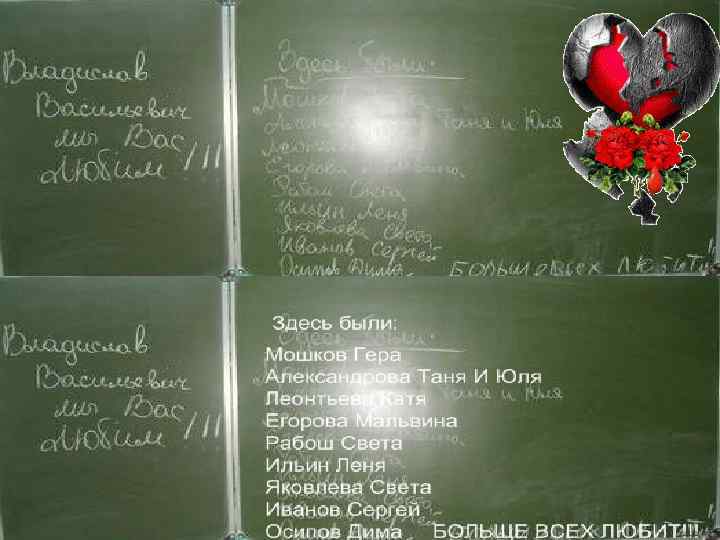 Владислав
Васильевич
мы Вас
любим!!!
Здесь были:
Мошков Гера
Таня и Юля
Егорова
Света
Ильин Леня
Яковлева Света
Иванов Сергей
Осипов Дима БОЛЬШЕ ВСЕХ ЛЮБИТ!!
Владислав
Васильевич
мы Вас
любим!!!
Здесь были:
Мошков Гера
Александрова Таня И Юля
Леонтьева Катя
Егорова Мальвина
Рабош Света
Ильин Леня
Яковлева Света
Иванов Сергей
Осипов Дима БОЛЬШЕ ВСЕХ ЛЮБИТ!!!